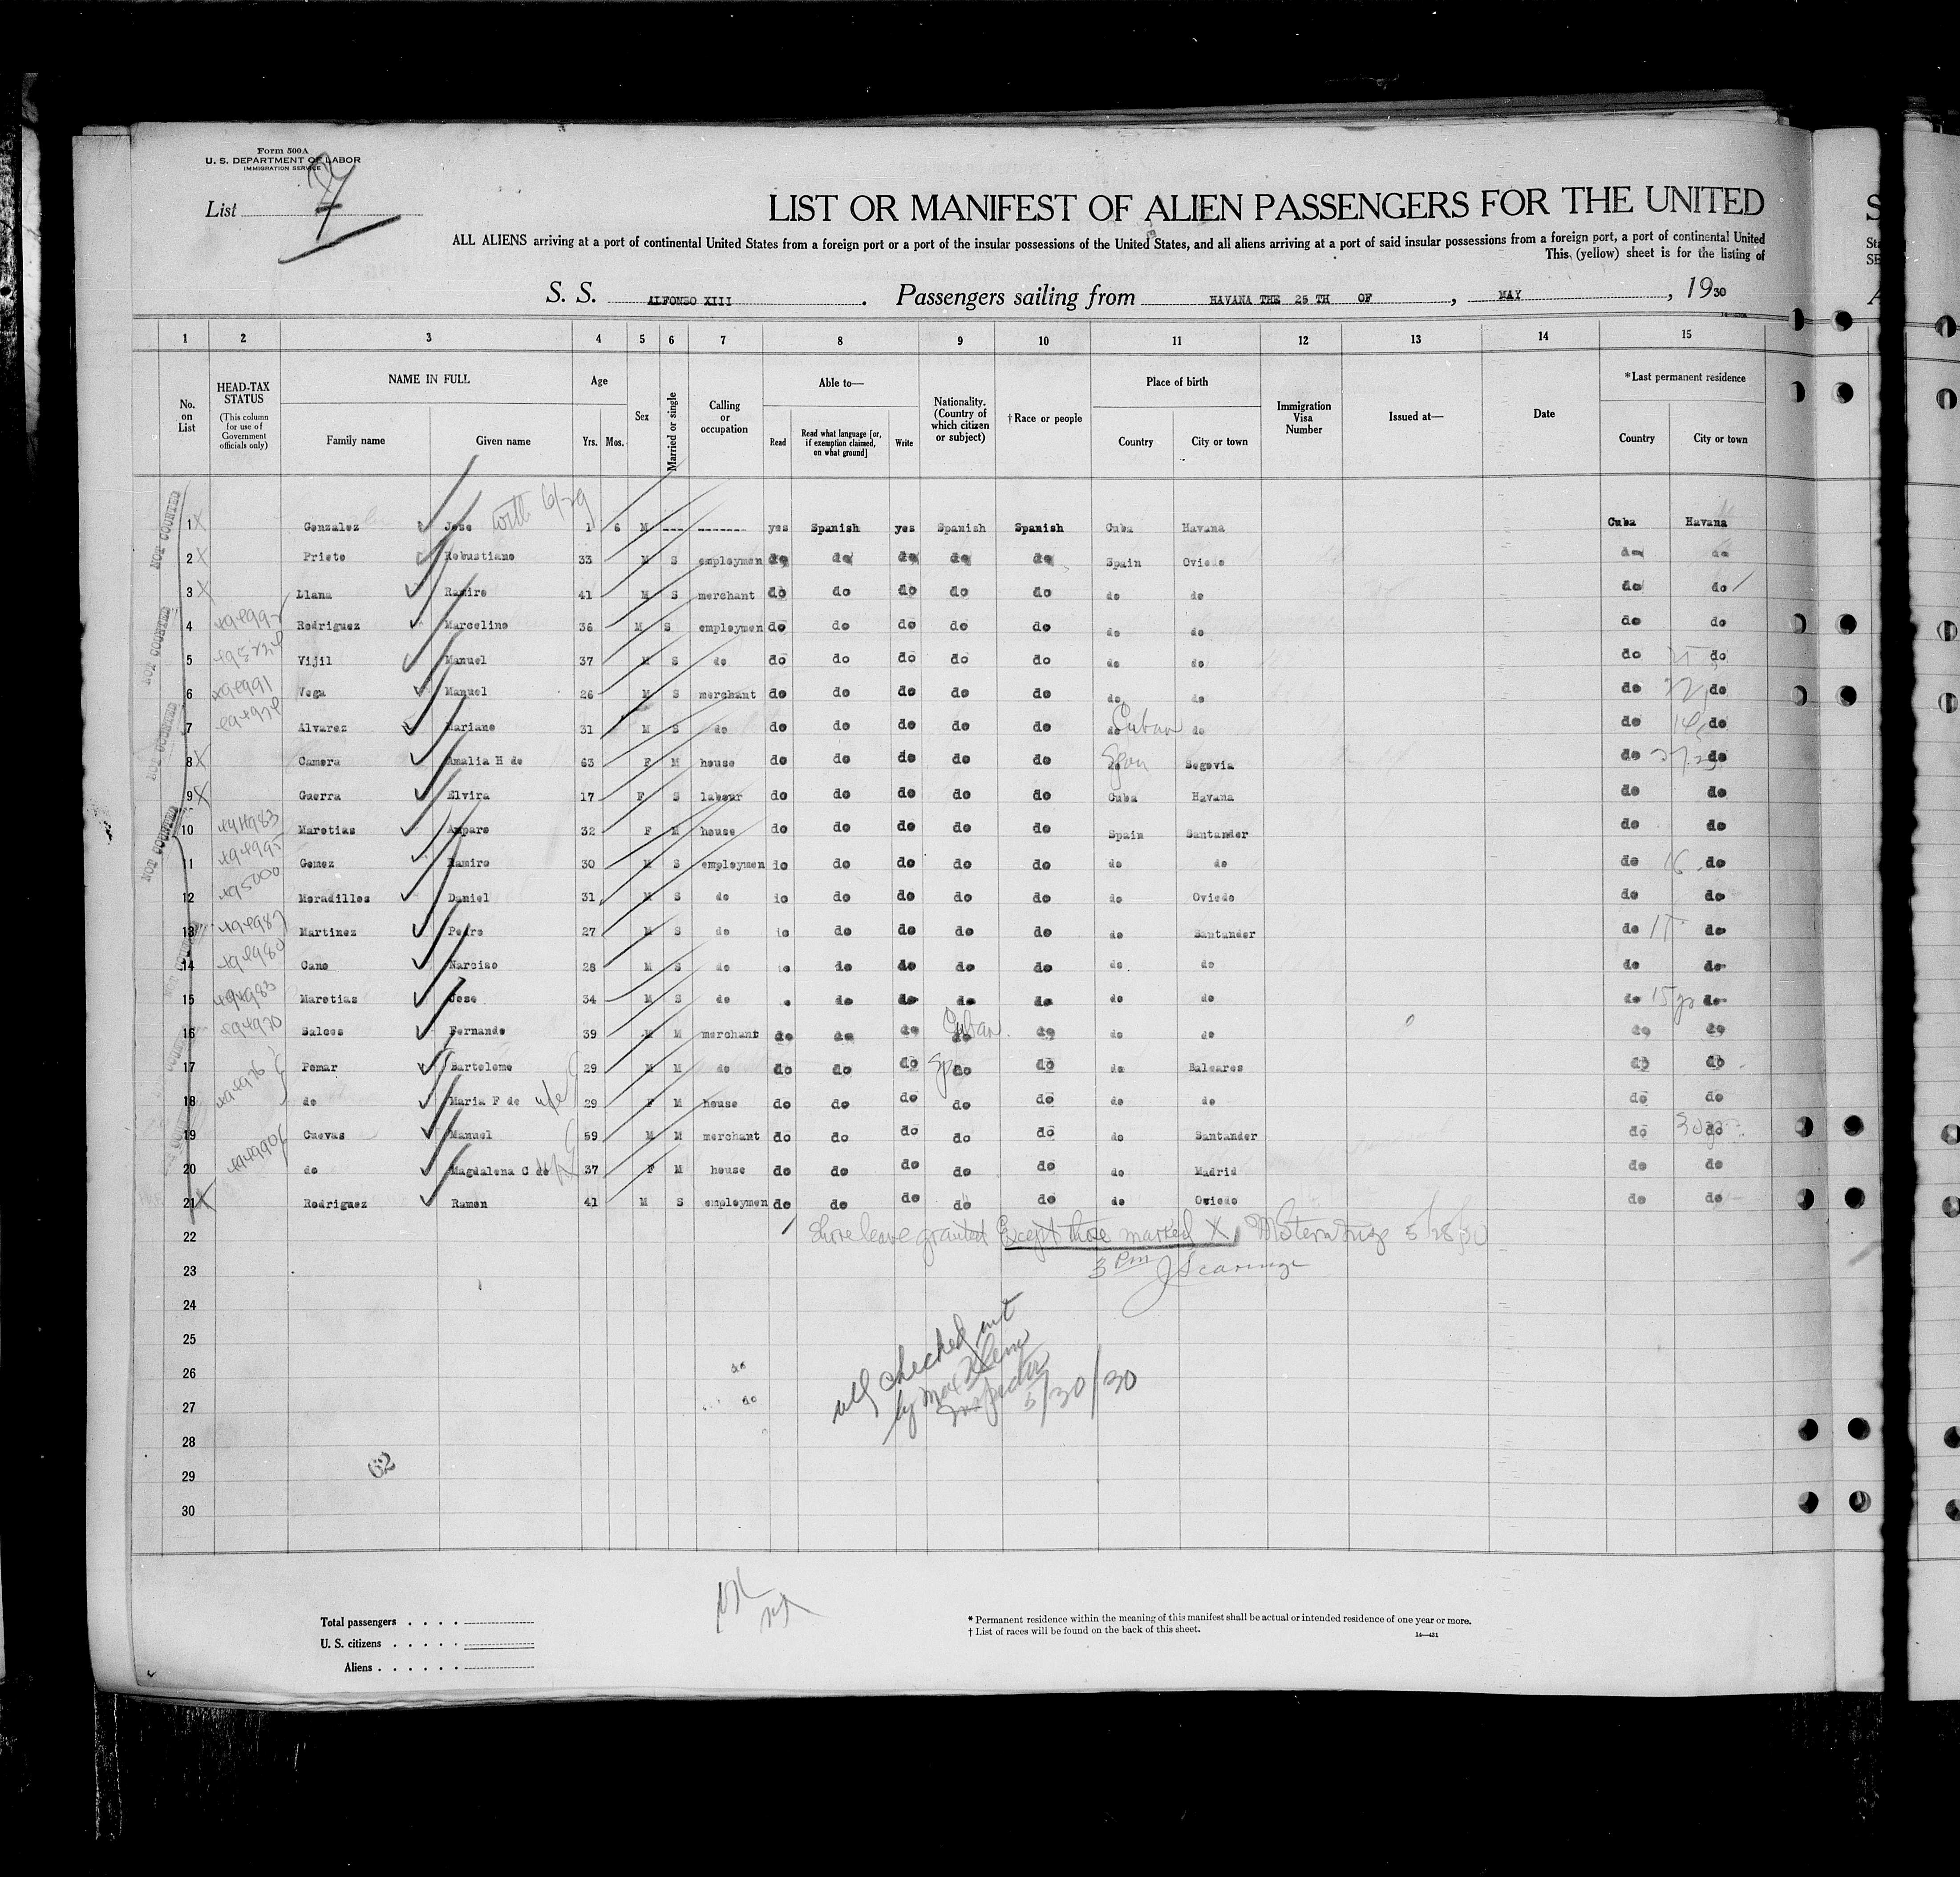 Form 500A
U. S. DEPARTMENT OF LABOR
IMMIGRATION SERVICE
List 7
LIST OR MANIFEST OF ALIEN PASSENGERS FOR THE UNITED
ALL ALIENS arriving at a port of continental United States from a foreign port or a port of the insular possessions of the United States, and all aliens arriving at a port of said insular possessions from a foreign port, a port of continental United
This (yellow) sheet is for the listing of
S. S. ALFONSO XIII . Passengers sailing from HAVANA THE 25 TH OF , MAY , 1930
1 2 3 4 5 6 7 8 9 10 11 12 13 14 15
No. on List
HEAD-TAX STATUS (This column for use of Government officials only)
NAME IN FULL Family name Given name
Age Yrs. Mos.
Sex
Married or single
Calling or occupation
Able to— Read Read what language [or, if exemption claimed, on what ground] Write
Nationality. (Country of which citizen or subject)
†Race or people
Place of birth Country City or town
Immigration Visa Number
Issued at—
Date
*Last permanent residence Country City or town
1 X Gonzalez Jose 1 6 M --- ------- yes Spanish yes Spanish Spanish Cuba Havana Cuba Havana
2 X Prieto Robustiano 33 M S employmen do do do do do Spain Oviedo do do
3 X Llana Ramiro 41 M S merchant do do do do do do do do do
4 Rodriguez Marcelino 36 M S employmen do do do do do do do do do
5 Vijil Manuel 37 M S do do do do do do do do do do
6 494991 Vega Manuel 26 M S merchant do do do do do do do do do
7 Alvarez Mariano 31 M S do do do do do do do Cuban do do do
8 X Camera Amalia H de 63 F M house do do do do do do Span Segovia do do
9 X Guerra Elvira 17 F S labour do do do do do Cuba Havana do do
10 Maretias Amparo 32 F M house do do do do do Spain Santander do do
11 494995 Gomez Ramiro 30 M S employmen do do do do do do do do 16 do
12 495000 Meradilles Daniel 31 M S do do do do do do do Oviedo do do
13 494987 Martinez Pedro 27 M S do do do do do do do Santander do do
14 494980 Cano Narciso 28 M S do do do do do do do do do do
15 494983 Maretias Jose 34 M S do do do do do do do do 15 yr do
16 494970 Salces Fernando 39 M M merchant do do do do Cuban do do do do do
17 494976 Pomar Bartolome 29 M M do do do do do Sp do do Baleares do do
18 do Maria F de wife 29 F M house do do do do do do do do do
19 494990 Cuevas Manuel 59 M M merchant do do do do do do Santander do do
20 do Magdalena C de 37 F M house do do do do do do Madrid do do
21 X Rodriguez Ramon 41 M S employmen do do do do do do Oviedo do do
22 Shore leave granted Except those marked X 5/28/30
23 3 Pm
24
25 all checked out
26 do by Max
27 do Inspector 5/30/30
28
29 62
30
NOT COUNTED
NOT COUNTED
NOT COUNTED
NOT COUNTED
Total passengers
U. S. citizens
Aliens
* Permanent residence within the meaning of this manifest shall be actual or intended residence of one year or more.
† List of races will be found on the back of this sheet.
14—431